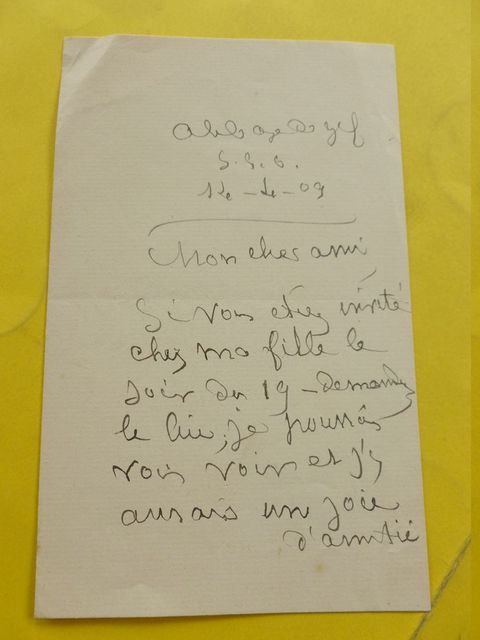 Abbaye de Gif
S. & O.
12 - 4 - 09
Mon cher ami
Si vous étiez invité
chez ma fille le
soir du 19 - demandez
le lui, je pourrais
vous voir et j'y
aurais un joie
d'amitié